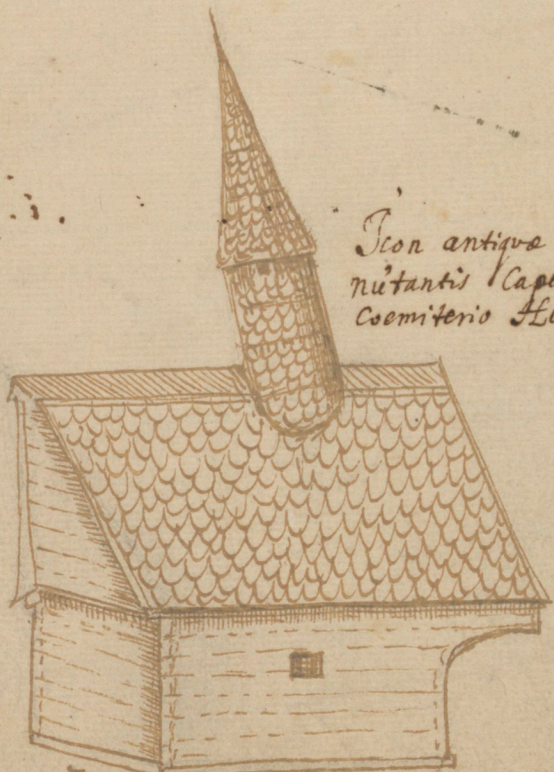 Icon antiqvæ
nutantis Cape
Coemiterio